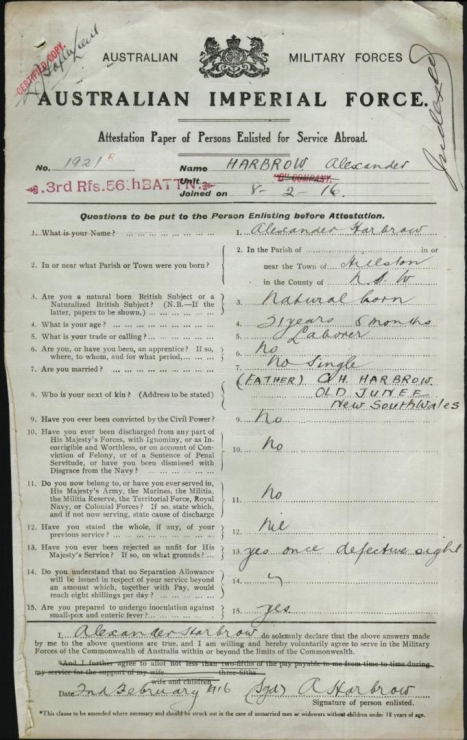 CERTIFIED COPY.
Indexed
AUSTRALIAN MILITARY FORCES
AUSTRALIAN IMPERIAL FORCE.
Attestation Paper of Persons Enlisted for Service Abroad.
No. 1921 Name HARBROW Alexander
3rd Rfs. 56thBATTN. Unit
Joined on 8-2-16.
Questions to be put to the Person Enlisting before Attestation.
1. What is your Name? ... 1. Alexander Harbrow
2. In or near what Parish or Town were you born? ... 2. In the Parish of ... in or
near the Town of Hillston
in the County of N.S.W
3. Are you a natural born British Subject or a
Naturalized British Subject? (N.B.—If the
latter, papers to be shown.) ... 3. Natural born
4. What is your age? ... 4. 21 years 5 months
5. What is your trade or calling? ... 5. Laborer
6. Are you, or have you been, an apprentice? If so,
where, to whom, and for what period ... 6. No
7. Are you married? ... 7. No Single
8. Who is your next of kin? (Address to be stated) (FATHER) C.H. HARBROW.
OLD JUNEE
NEW SOUTH WALES
9. Have you ever been convicted by the Civil Power? 9. No
10. Have you ever been discharged from any part of
His Majesty's Forces, with Ignominy, or as In-
corrigible and Worthless, or on account of Con-
viction of Felony, or of a Sentence of Penal
Servitude, or have you been Dismissed with
Disgrace from the Navy? ... 10. No
11. Do you now belong to, or have you ever served in,
His Majesty's Army, the Marines, the Militia,
the Militia Reserve, the Territorial Force, Royal
Navy, or Colonial Forces? If so, state which,
and if not now serving, state cause of discharge 11. No
12. Have you stated the whole, if any, of your
previous service? ... 12. Nil
13. Have you ever been rejected as unfit for His
Majesty's Service? If so, on what grounds? ... 13. yes once defective sight
14. Do you understand that no Separation Allowance
will be issued in respect of your service beyond
an amount which, together with Pay, would
reach eight shillings per day? ... 14. "
15. Are you prepared to undergo inoculation against
small-pox and enteric fever? ... 15. yes
I, Alexander Harbrow do solemnly declare that the above answers made
by me to the above questions are true, and I am willing and hereby voluntarily agree to serve in the Military
Forces of the Commonwealth of Australia within or beyond the limits of the Commonwealth.
*And I further agree to allot not less than two-fifths of the pay payable to me from time to time during
my service for the support of my wife three-fifths
wife and children.
Date 2nd February 1916 (Sgd) A Harbrow
Signature of person enlisted.
*This clause to be amended where necessary and should be struck out in the case of unmarried men or widowers without children under 18 years of age.